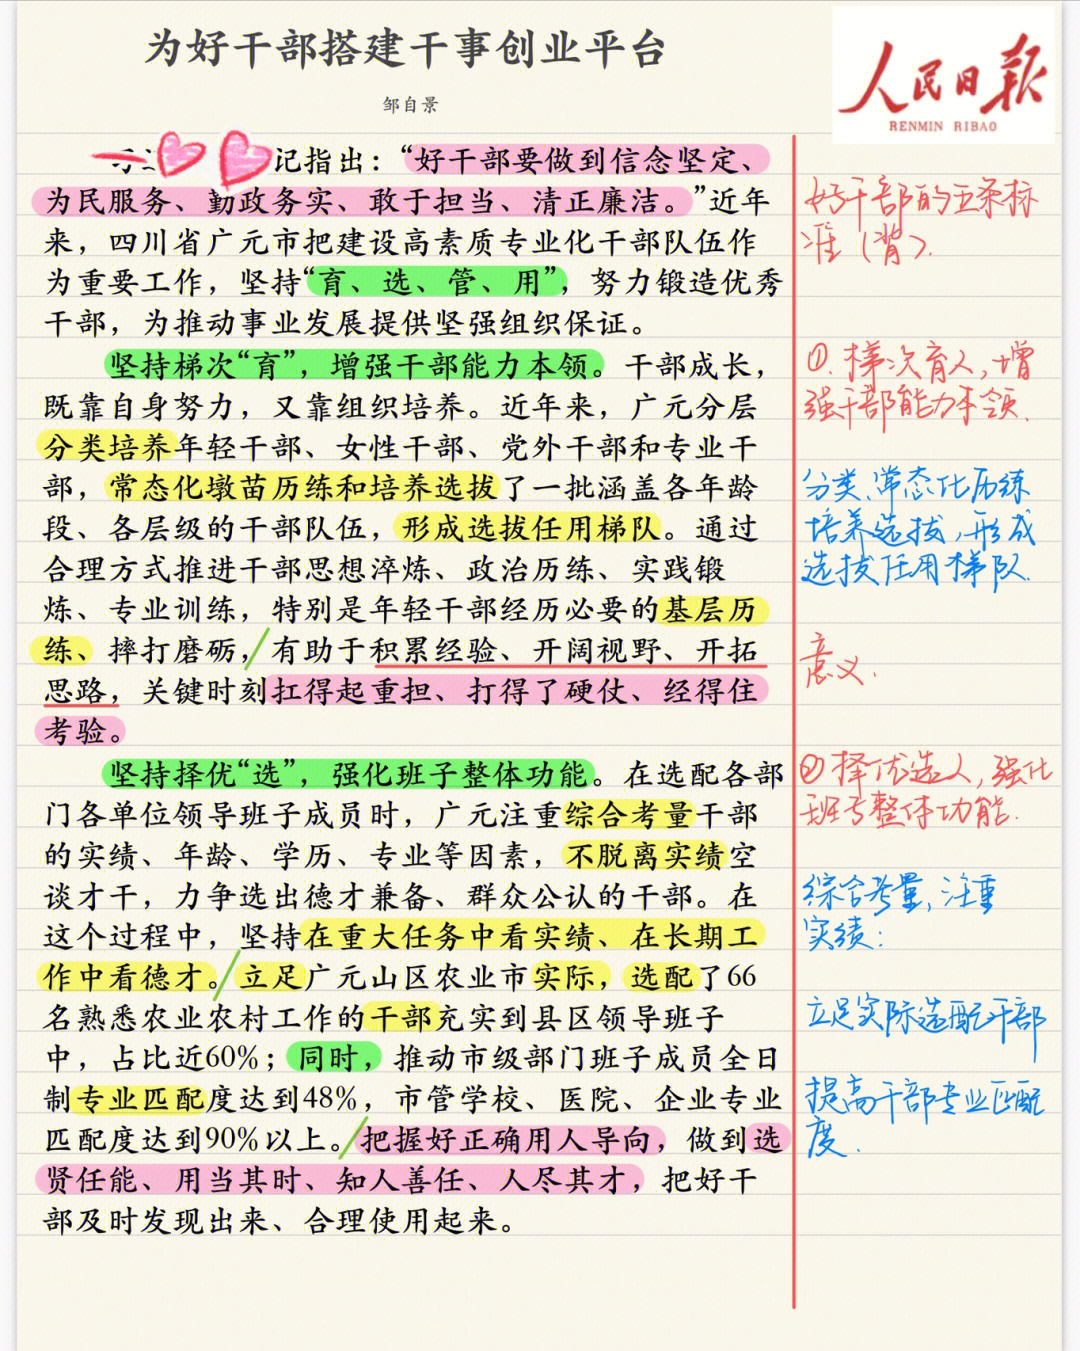 为好干部搭建干事创业平台
邹自景
人民日报
RENMIN RIBAO
记指出：“好干部要做到信念坚定、
为民服务、勤政务实、敢于担当、清正廉洁。”近年
来，四川省广元市把建设高素质专业化干部队伍作
为重要工作，坚持“育、选、管、用”，努力锻造优秀
干部，为推动事业发展提供坚强组织保证。
坚持梯次“育”，增强干部能力本领。干部成长，
既靠自身努力，又靠组织培养。近年来，广元分层
分类培养年轻干部、女性干部、党外干部和专业干
部，常态化墩苗历练和培养选拔了一批涵盖各年龄
段、各层级的干部队伍，形成选拔任用梯队。通过
合理方式推进干部思想淬炼、政治历练、实践锻
炼、专业训练，特别是年轻干部经历必要的基层历
练、摔打磨砺，有助于积累经验、开阔视野、开拓
思路，关键时刻扛得起重担、打得了硬仗、经得住
考验。
坚持择优“选”，强化班子整体功能。在选配各部
门各单位领导班子成员时，广元注重综合考量干部
的实绩、年龄、学历、专业等因素，不脱离实绩空
谈才干，力争选出德才兼备、群众公认的干部。在
这个过程中，坚持在重大任务中看实绩、在长期工
作中看德才。立足广元山区农业市实际，选配了66
名熟悉农业农村工作的干部充实到县区领导班子
中，占比近60%；同时，推动市级部门班子成员全日
制专业匹配度达到48%，市管学校、医院、企业专业
匹配度达到90%以上。把握好正确用人导向，做到选
贤任能、用当其时、知人善任、人尽其才，把好干
部及时发现出来、合理使用起来。
好干部的五条标
准（背）.
①. 梯次育人，增
强干部能力本领.
分类、常态化历练
培养选拔，形成
选拔任用梯队.
意义.
② 择优选人，强化
班子整体功能.
综合考量，注重
实绩：
立足实际选配干部
提高干部专业匹配
度.